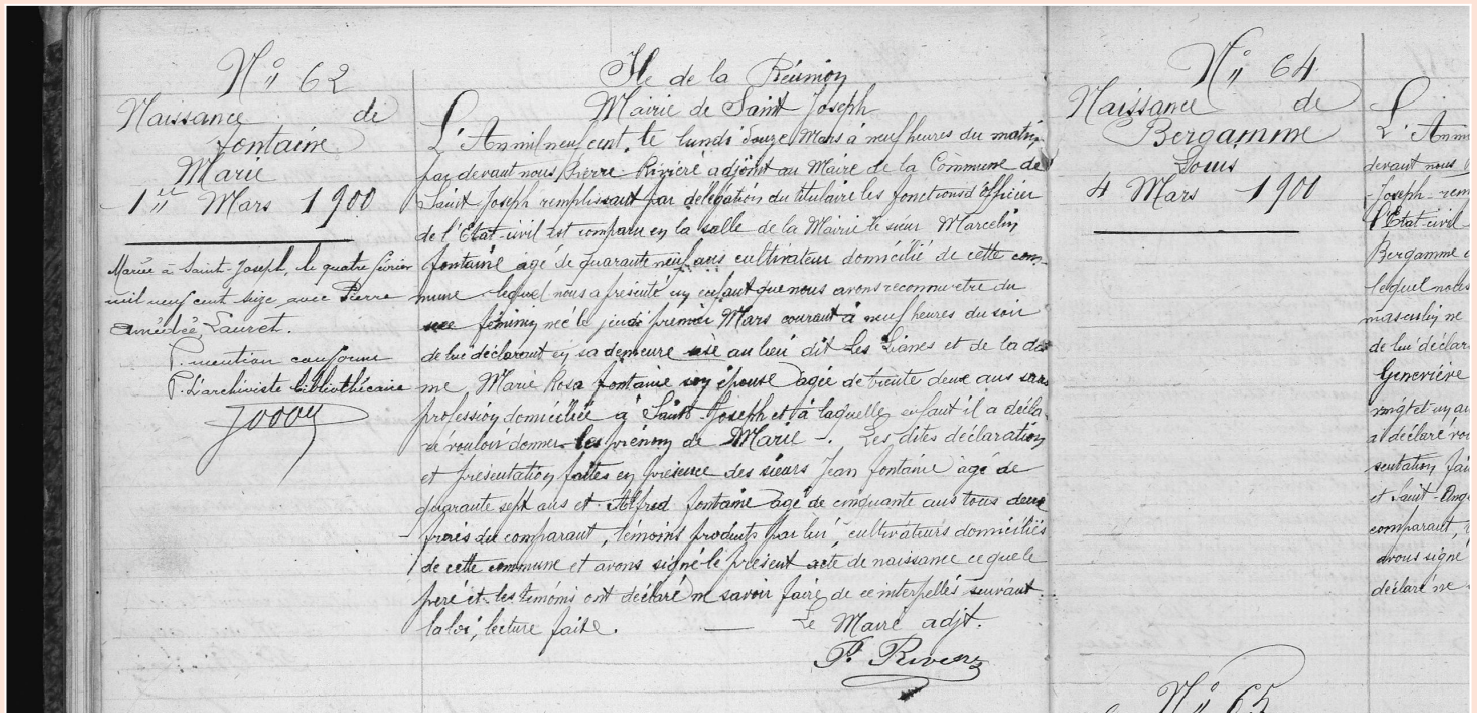 N° 62
Naissance de
fontaine
Marie
1er Mars 1900
Mariée à Saint-Joseph, le quatre février
mil neuf cent seize avec Pierre
Amédée Lauret.
P. mention conforme
P. L'archiviste bibliothécaire
Ile de la Réunion
Mairie de Saint Joseph
L'An mil neuf cent, le lundi douze Mars à neuf heures du matin
par devant nous Pierre Rivière adjoint au Maire de la Commune de
Saint Joseph remplissant par délégation du titulaire les fonctions d'officier
de l'Etat-civil est comparu en la salle de la Mairie le sieur Marcelin
fontaine âgé de quarante neuf ans cultivateur domicilié de cette com-
mune lequel nous a présenté un enfant que nous avons reconnu être du
sexe féminin née le jeudi premier Mars courant à neuf heures du soir
de lui déclarant en sa demeure sise au lieu dit les Lianes et de la da
me Marie Rosa fontaine son épouse âgée de trente deux ans sans
profession domiciliée à Saint-Joseph et à laquelle enfant il a décla
ré vouloir donner les prénom de Marie -. Les dites déclaration
et présentation faites en présence des sieurs Jean fontaine âgé de
quarante sept ans et Alfred fontaine âgé de cinquante ans tous deux
frères du comparant, témoins produits par lui, cultivateurs domiciliés
de cette commune et avons signé le présent acte de naissance ce que le
père et les témoins ont déclaré ne savoir faire de ce interpellés suivant
la loi, lecture faite. — Le Maire adjt.
P. Riviere
N° 64
Naissance de
Bergamme
Louis
4 Mars 1900
L'An m
devant nous
Joseph rem
l'Etat-civil
Bergamme
lequel nous
masculin né
de lui déclar
Geneviève
vingt et un an
a déclaré vou
sentation fai
et Saint-Ang
comparant,
avons signé
déclaré ne
N° 65